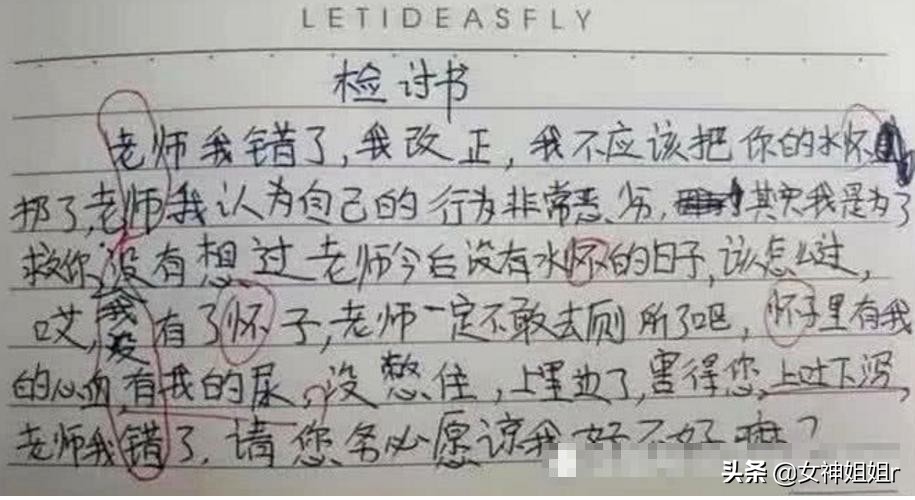 LETIDEASFLY
检讨书
老师我错了,我改正,我不应该把你的水怀
扔了,老师我认为自己的行为非常恶劣,其实我是为了
救你,没有想过老师今后没有水怀的日子,该怎么过,
哎,我没有了怀子,老师一定不敢去厕所了吧,怀子里有我
的心血,有我的尿,没憋住,上里边了,害得您上吐下泻,
老师我错了,请您务必愿谅我好不好嘛?
头条 @女神姐姐r